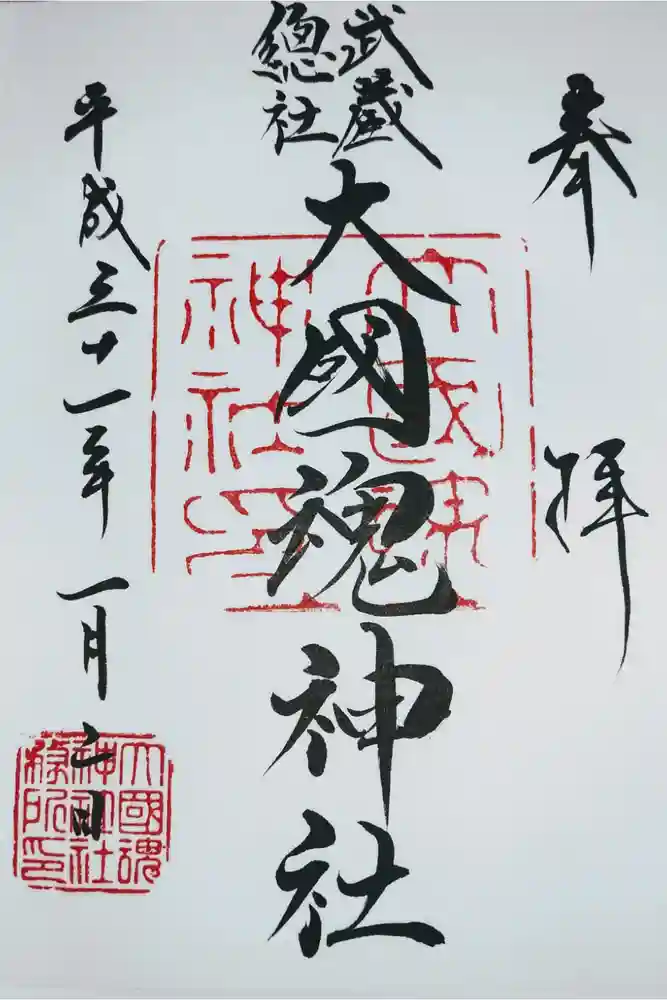 奉拝
武蔵
總社
大國魂神社
平成三十一年一月二日
大國魂
神社印
大國魂
神社社
務所印